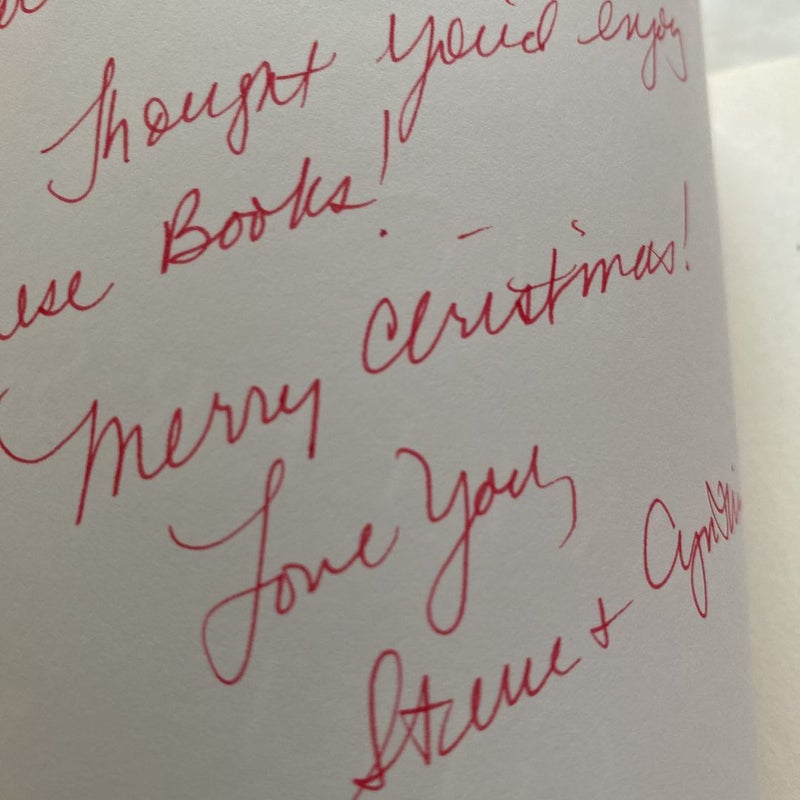 Thought you'd enjoy
ese Books!
Merry Christmas!
Love You,
Steve + Cynthi